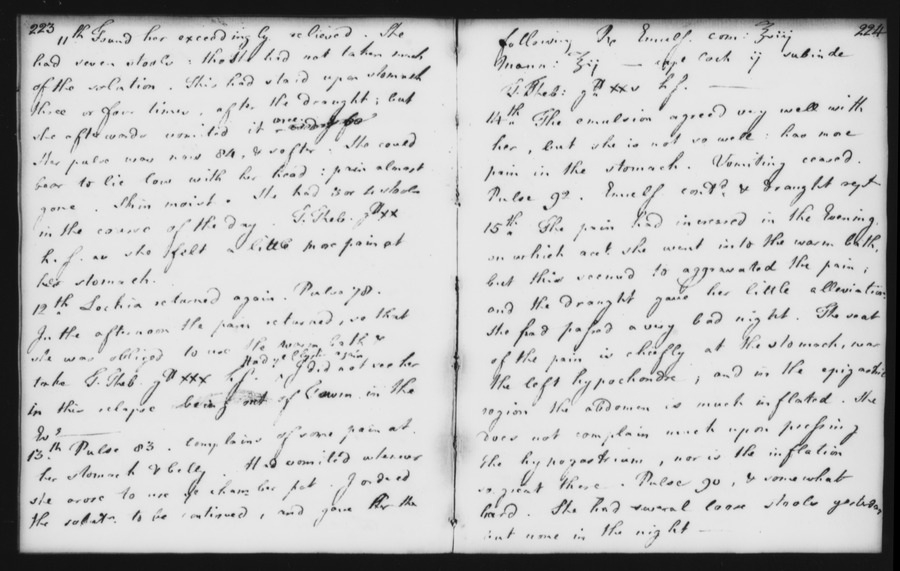 223
11th Found her exceedingly relieved. She
had seven stools: tho she had not taken much
of the solution. This had staid upon stomach
three or four times, after the draught; but
she afterwards vomited it once
Her pulse was now 84, & softer. She could
bear to lie low with her head: pain almost
gone. Skin moist. She had 3 or 4 stools
in the course of the day. T. Theb. gtt xx
h. s. as she felt a little more pain at
her stomach.
12th Lochia returned again. Pulse 78.
In the afternoon the pain returned, so that
she was obliged to use the warm bath &
had ye Clyster again
take T. Theb. gtt xxx h.s. I did not see her
in this relapse being out of Town in the
Evg
13th Pulse 83. Complains of some pain at
her stomach & belly. Had vomited whenever
she arose to use ye chamber pot. I ordered
the solutn. to be continued, and gave her the
224
following Rx Emuls. com: ℥viij
Manna: ℥ij — cape Coch ij subinde
T. Theb: gtt xxv h.s. —
14th The emulsion agreed very well with
her, but she is not so well: has more
pain in the stomach. Vomiting ceased.
Pulse 92. Emuls contd. & Draught rept
15th The pain had increased in the Evening.
on which acct. she went into the warm bath,
but this seemed to aggravated the pain;
and the draught gave her little alleviation:
She had passed a very bad night. The seat
of the pain is chiefly at the stomach, near
the left hypochondre; and in the epigastric
region the abdomen is much inflated. She
does not complain much upon pressing
the hypogastrium, nor is the inflation
so great there. Pulse 90, & somewhat
hard. She had several loose stools yesterday,
but none in the night —